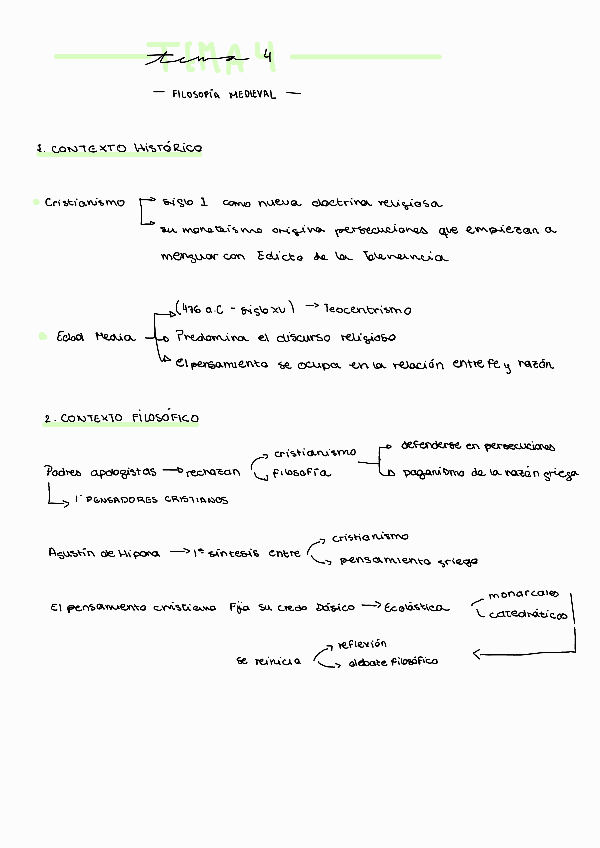 TEMA 4
tema 4
— FILOSOFÍA MEDIEVAL —
1. CONTEXTO HISTÓRICO
Cristianismo siglo 1 como nueva doctrina religiosa
su monoteísmo origina persecuciones que empiezan a
menguar con Edicto de la Tolerencia
(476 a.C - siglo XV) → Teocentrismo
Edad Media → Predomina el discurso religioso
El pensamiento se ocupa en la relación entre fe y razón
2. CONTEXTO FILOSÓFICO
defenderse en persecuciones
cristianismo
Padres apologistas → rechazan filosofía paganismo de la razón griega
1º PENSADORES CRISTIANOS
cristianismo
Agustín de Hipona → 1ª síntesis entre
pensamiento griego
monarcales
El pensamiento cristiano Fija su credo básico → Ecolástica
catedráticos
reflexión
se reinicia
debate filosófico